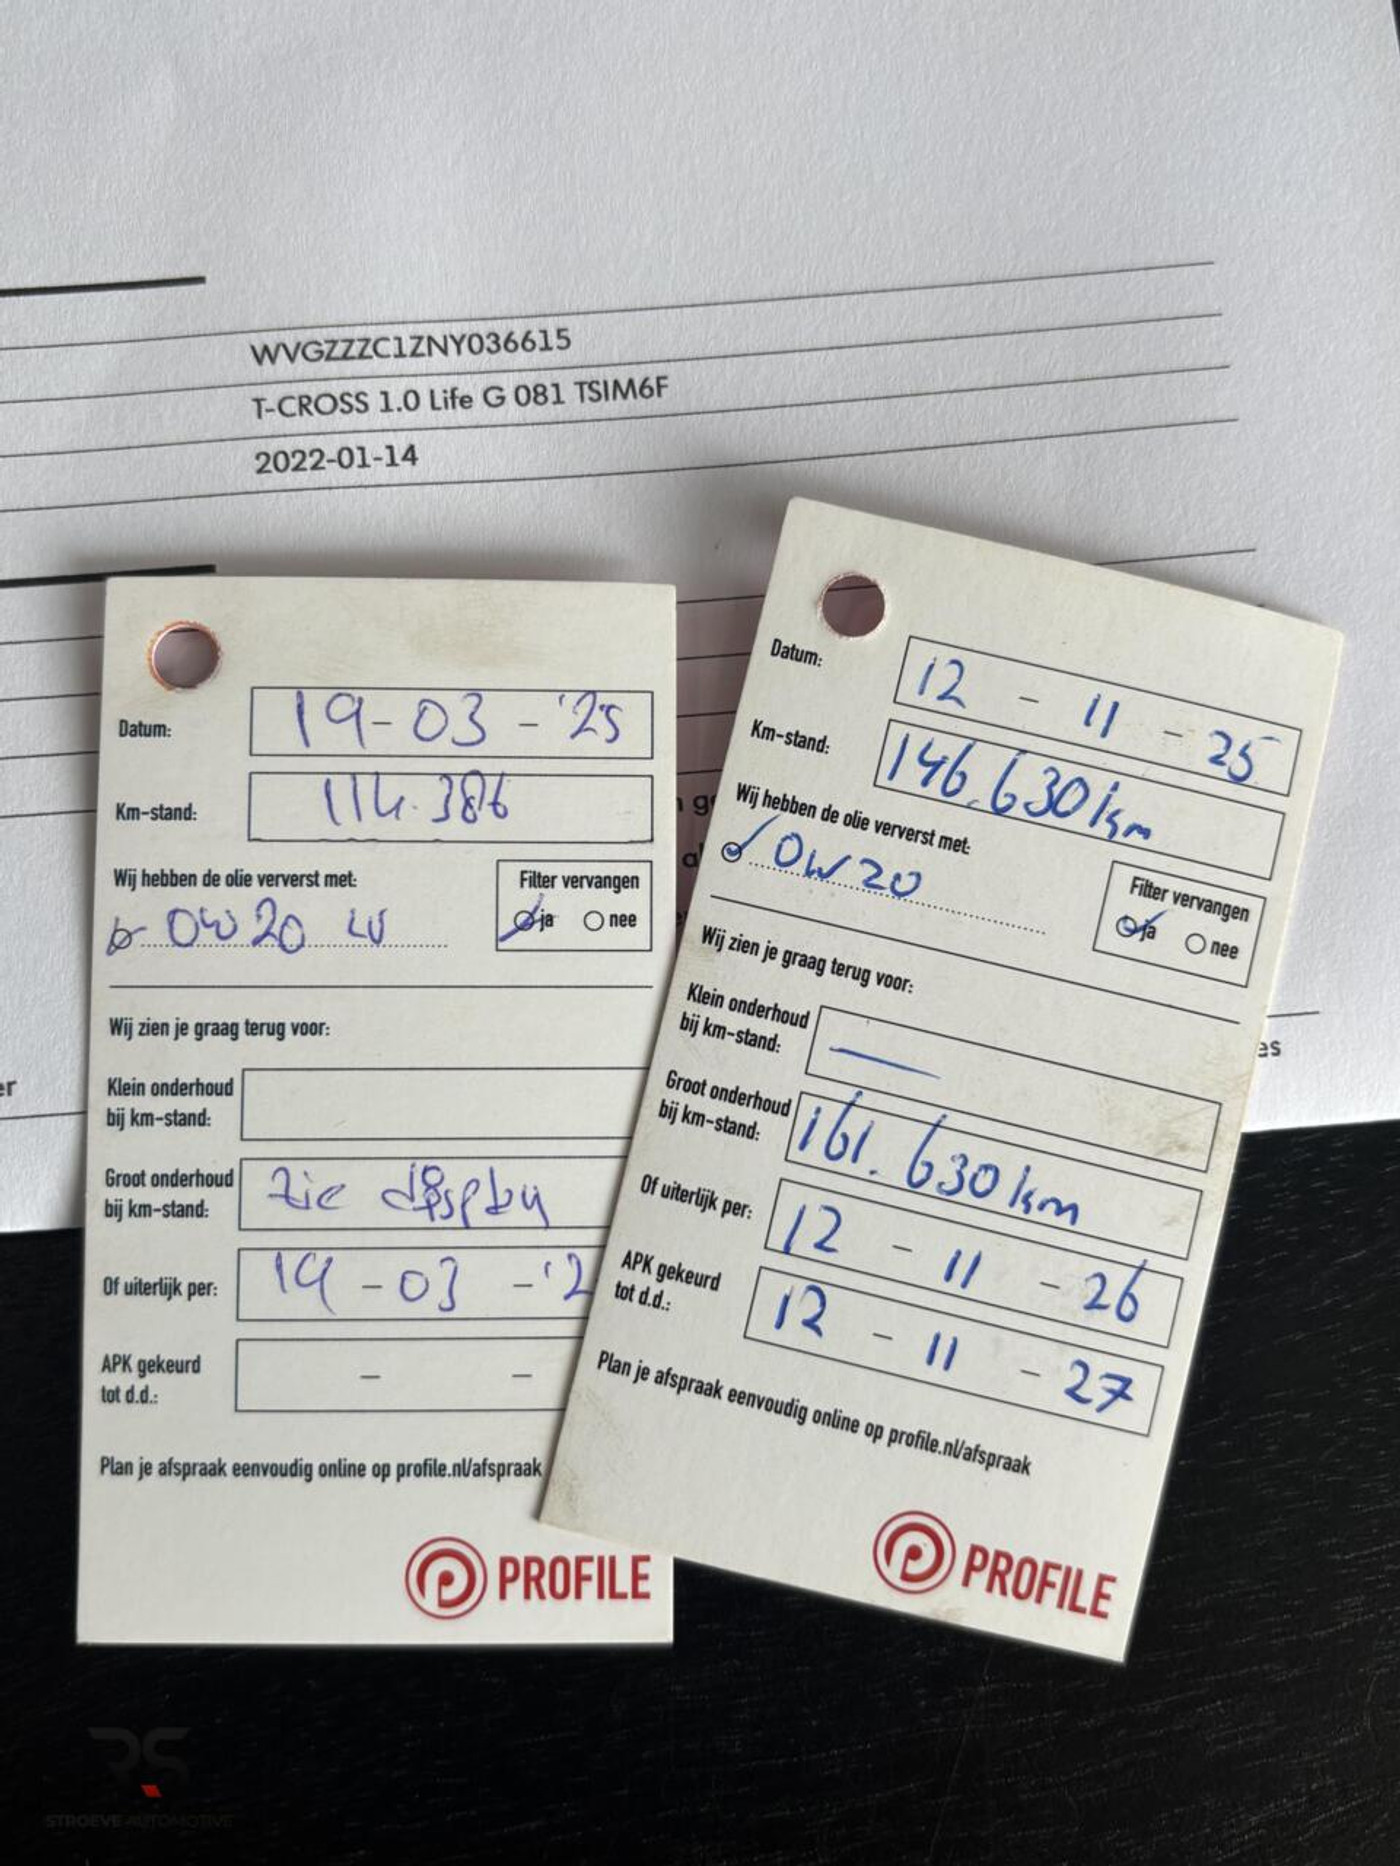 WVGZZZC1ZNY036615
T-CROSS 1.0 Life G 081 TSIM6F
2022-01-14
Datum: 19-03-'25
Km-stand: 114.386
Wij hebben de olie ververst met:
0W20
Filter vervangen
ja nee
Wij zien je graag terug voor:
Klein onderhoud
bij km-stand:
Groot onderhoud
bij km-stand: zie display
Of uiterlijk per: 19-03-'2
APK gekeurd
tot d.d.: - -
Plan je afspraak eenvoudig online op profile.nl/afspraak
PROFILE
Datum: 12-11-25
Km-stand: 146.630 km
Wij hebben de olie ververst met:
0W20
Filter vervangen
ja nee
Wij zien je graag terug voor:
Klein onderhoud
bij km-stand: —
Groot onderhoud
bij km-stand: 161.630 km
Of uiterlijk per: 12-11-26
APK gekeurd
tot d.d.: 12-11-27
Plan je afspraak eenvoudig online op profile.nl/afspraak
PROFILE
RS
STROEVE AUTOMOTIVE